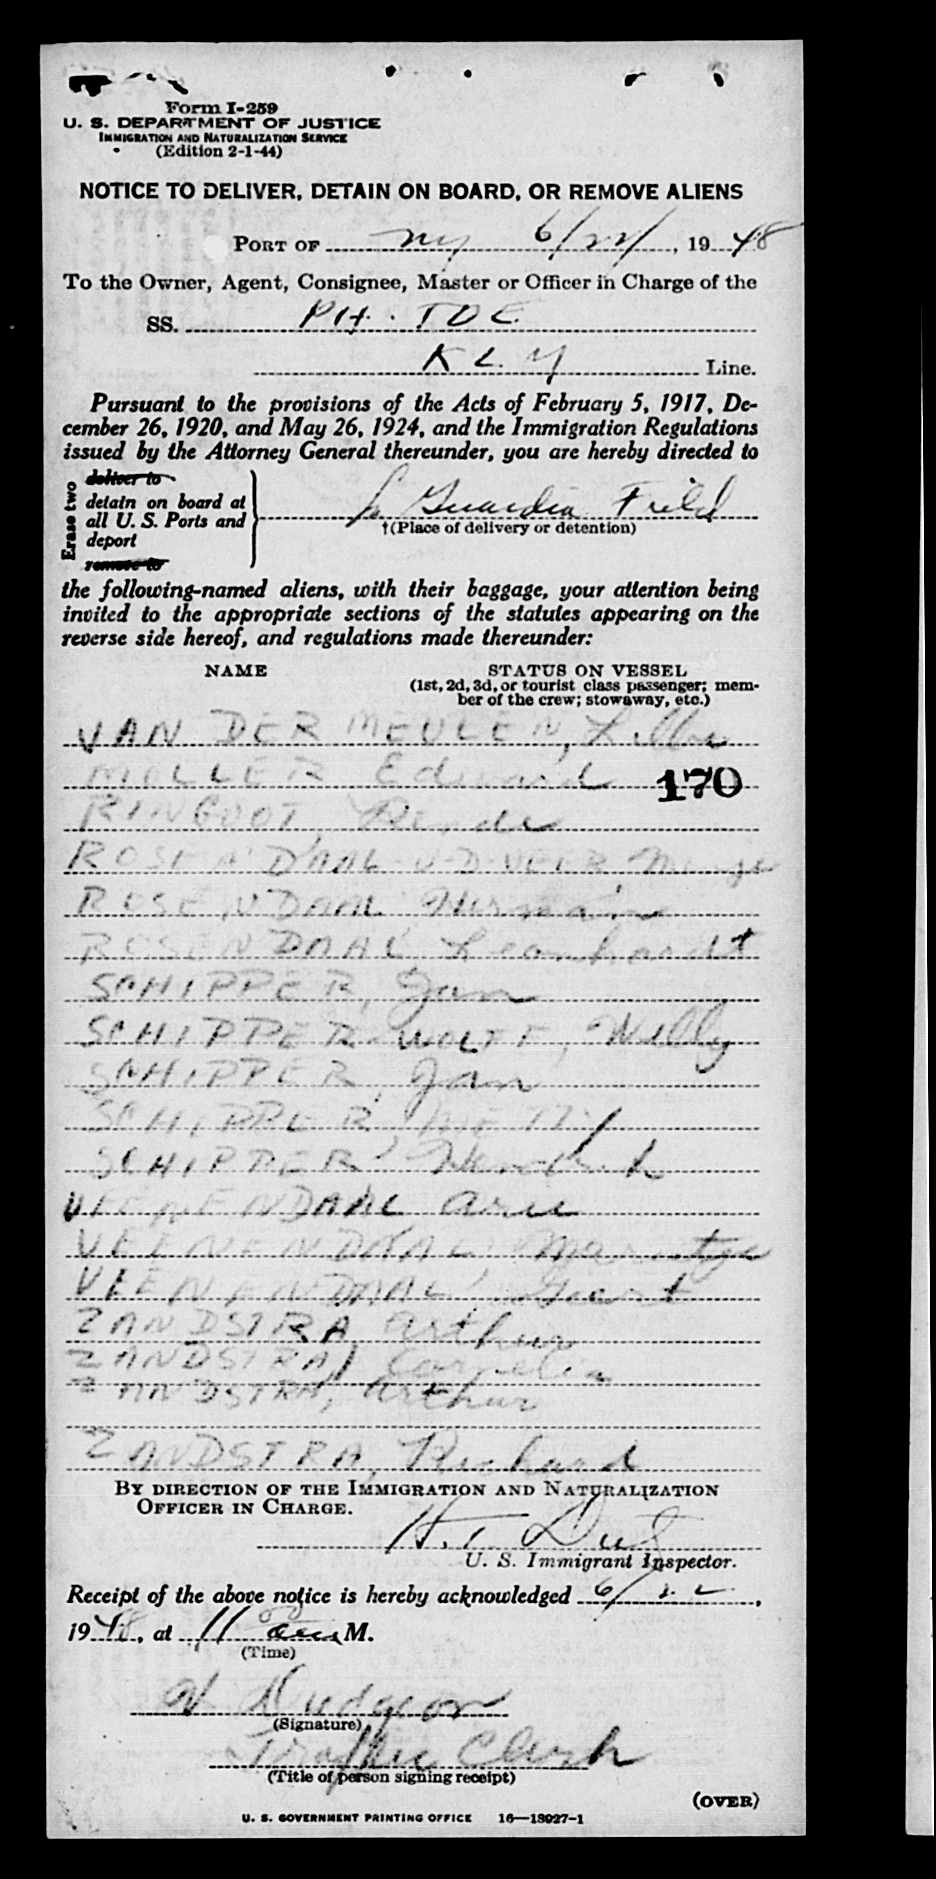 Form I-259
U. S. DEPARTMENT OF JUSTICE
IMMIGRATION AND NATURALIZATION SERVICE
(Edition 2-1-44)
NOTICE TO DELIVER, DETAIN ON BOARD, OR REMOVE ALIENS
PORT OF ny 6/22/, 1948
To the Owner, Agent, Consignee, Master or Officer in Charge of the
SS. PH. TDE
KLM Line.
Pursuant to the provisions of the Acts of February 5, 1917, De-
cember 26, 1920, and May 26, 1924, and the Immigration Regulations
issued by the Attorney General thereunder, you are hereby directed to
Erase two
deliver to
detain on board at
all U. S. Ports and
deport
remove to
La Guardia Field
†(Place of delivery or detention)
the following-named aliens, with their baggage, your attention being
invited to the appropriate sections of the statutes appearing on the
reverse side hereof, and regulations made thereunder:
NAME STATUS ON VESSEL
(1st, 2d, 3d, or tourist class passenger; mem-
ber of the crew; stowaway, etc.)
VAN DER MEULEN,
MULLER Edward 170
RINGOOT
ROSENDAAL-V-D-VEER
ROSENDAAL Herman
ROSENDAAL, Leonhardt
SCHIPPER, Jan
SCHIPPER-WOLFF, Willy
SCHIPPER, Jan
SCHIPPER METTY
SCHIPPER, Hendrik
VEENENDAAL Arie
VEENENDAAL, Marritje
VEENENDAAL, Geert
ZANDSTRA Arthur
ZANDSTRA, Cornelia
ZANDSTRA, Arthur
ZANDSTRA, Richard
BY DIRECTION OF THE IMMIGRATION AND NATURALIZATION
OFFICER IN CHARGE.
H.
U. S. Immigrant Inspector.
Receipt of the above notice is hereby acknowledged 6/22,
1948, at 11 00 am M.
(Time)
Dudgeon
(Signature)
Traffic Clerk
(Title of person signing receipt)
(OVER)
U. S. GOVERNMENT PRINTING OFFICE 16—18927-1